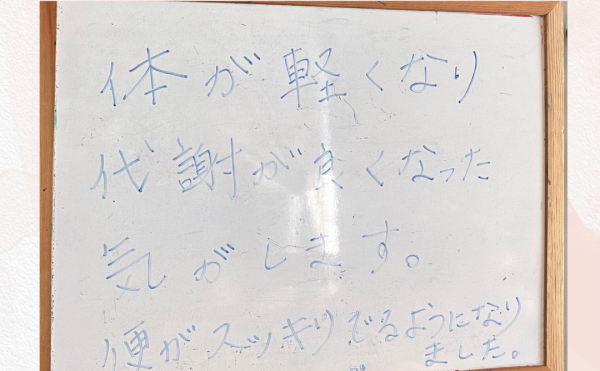 体が軽くなり
代謝が良くなった
気がします。
便がスッキリでるようになり
ました。